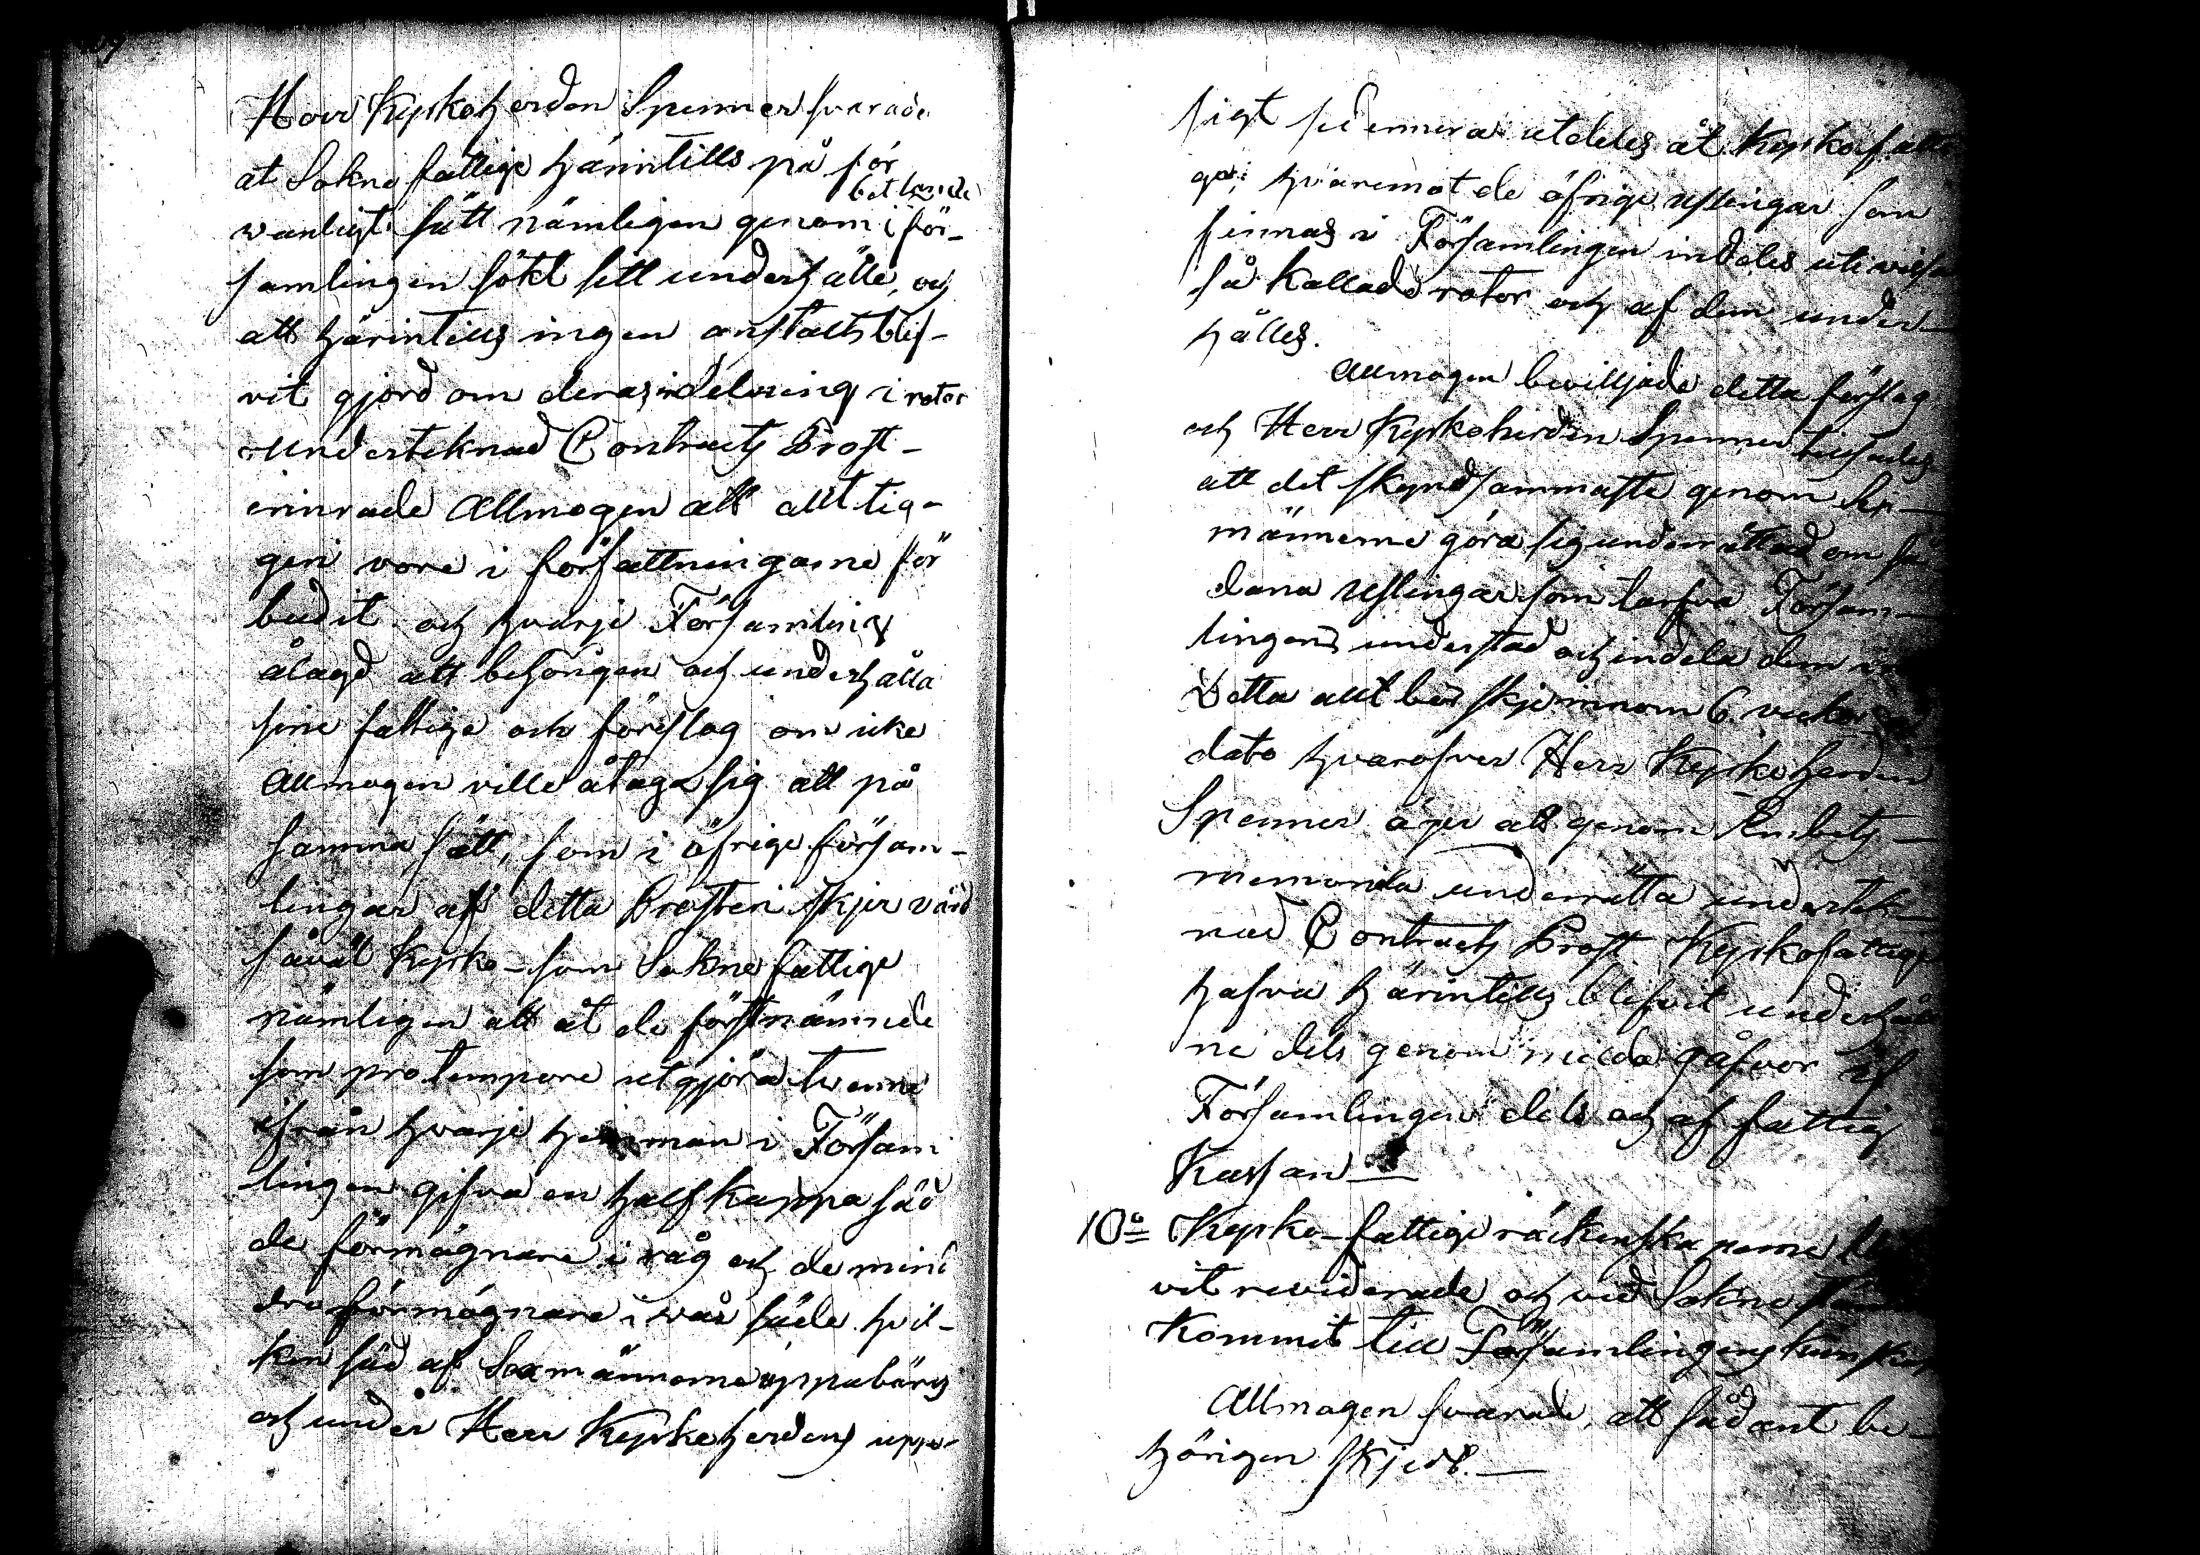 Herr Kyrkoherden Spenner svarade
at Sokne fattige härintills på för
betlande
wanligt sätt nämligen genom i för-
samlingen sökt sitt underhålle, och
att härintills ingen anstalts blif-
vit gjord om deras indelning i rotor
Underteknad Contracts Prost-
erinrade Allmogen att allt tig-
geri vore i författningarne för
budit och hvarje Församling
ålagd att behörigen och underhålla
sine fattige och förslog om icke
Allmogen ville åtaga sig att på
samma sätt, som i öfrige försam-
lingar af detta Prosteri skjer vård
såväl Kyrko- som Sokne fattige
nämligen att åt de förstnämnde
som pro tempore utgjöra tvenne
ifrån hvarje hemman i Försam
lingen gifva en half kappa säd
de förmögnare i råg och de mind
dre förmögnare i vår säde hvil-
ken säd af Sexmännerne uppubärs
och under Herr Kyrkoherdens upp-
sigt sedermera utdeles åt Kyrkofatti
ge; hvaremot de öfrige uslingar som
finnas i Församlingen indeles uti vissa
så kallade rotor och af dem under-
hålles.
Allmogen beviljade detta förslag
och Herr Kyrkoherden Spenner tillsades
att det skyndsammaste genom Sex-
männerne göra sig underrättad om så
dana uslingar som tarfva Försam-
lingens understöd och indela dem
Detta allt bör skje innom 6 veckor
dato hvaröfver Herr Kyrkoherden
Spenner äger att genom Embets-
memorial underrätta undertek-
nad Contracts Prost. Kyrkofattige
hafva härintills blifvit underhåll
ne dels genom milda gåfvor af
Församlingen dels och af fattig
Kassan
10o Kyrko-fattige räkenskaperne
vit reviderade och vid Sokne
Kommit till Församlingens kunskap
Allmogen svarade, att sådant be-
hörigen skjedt.